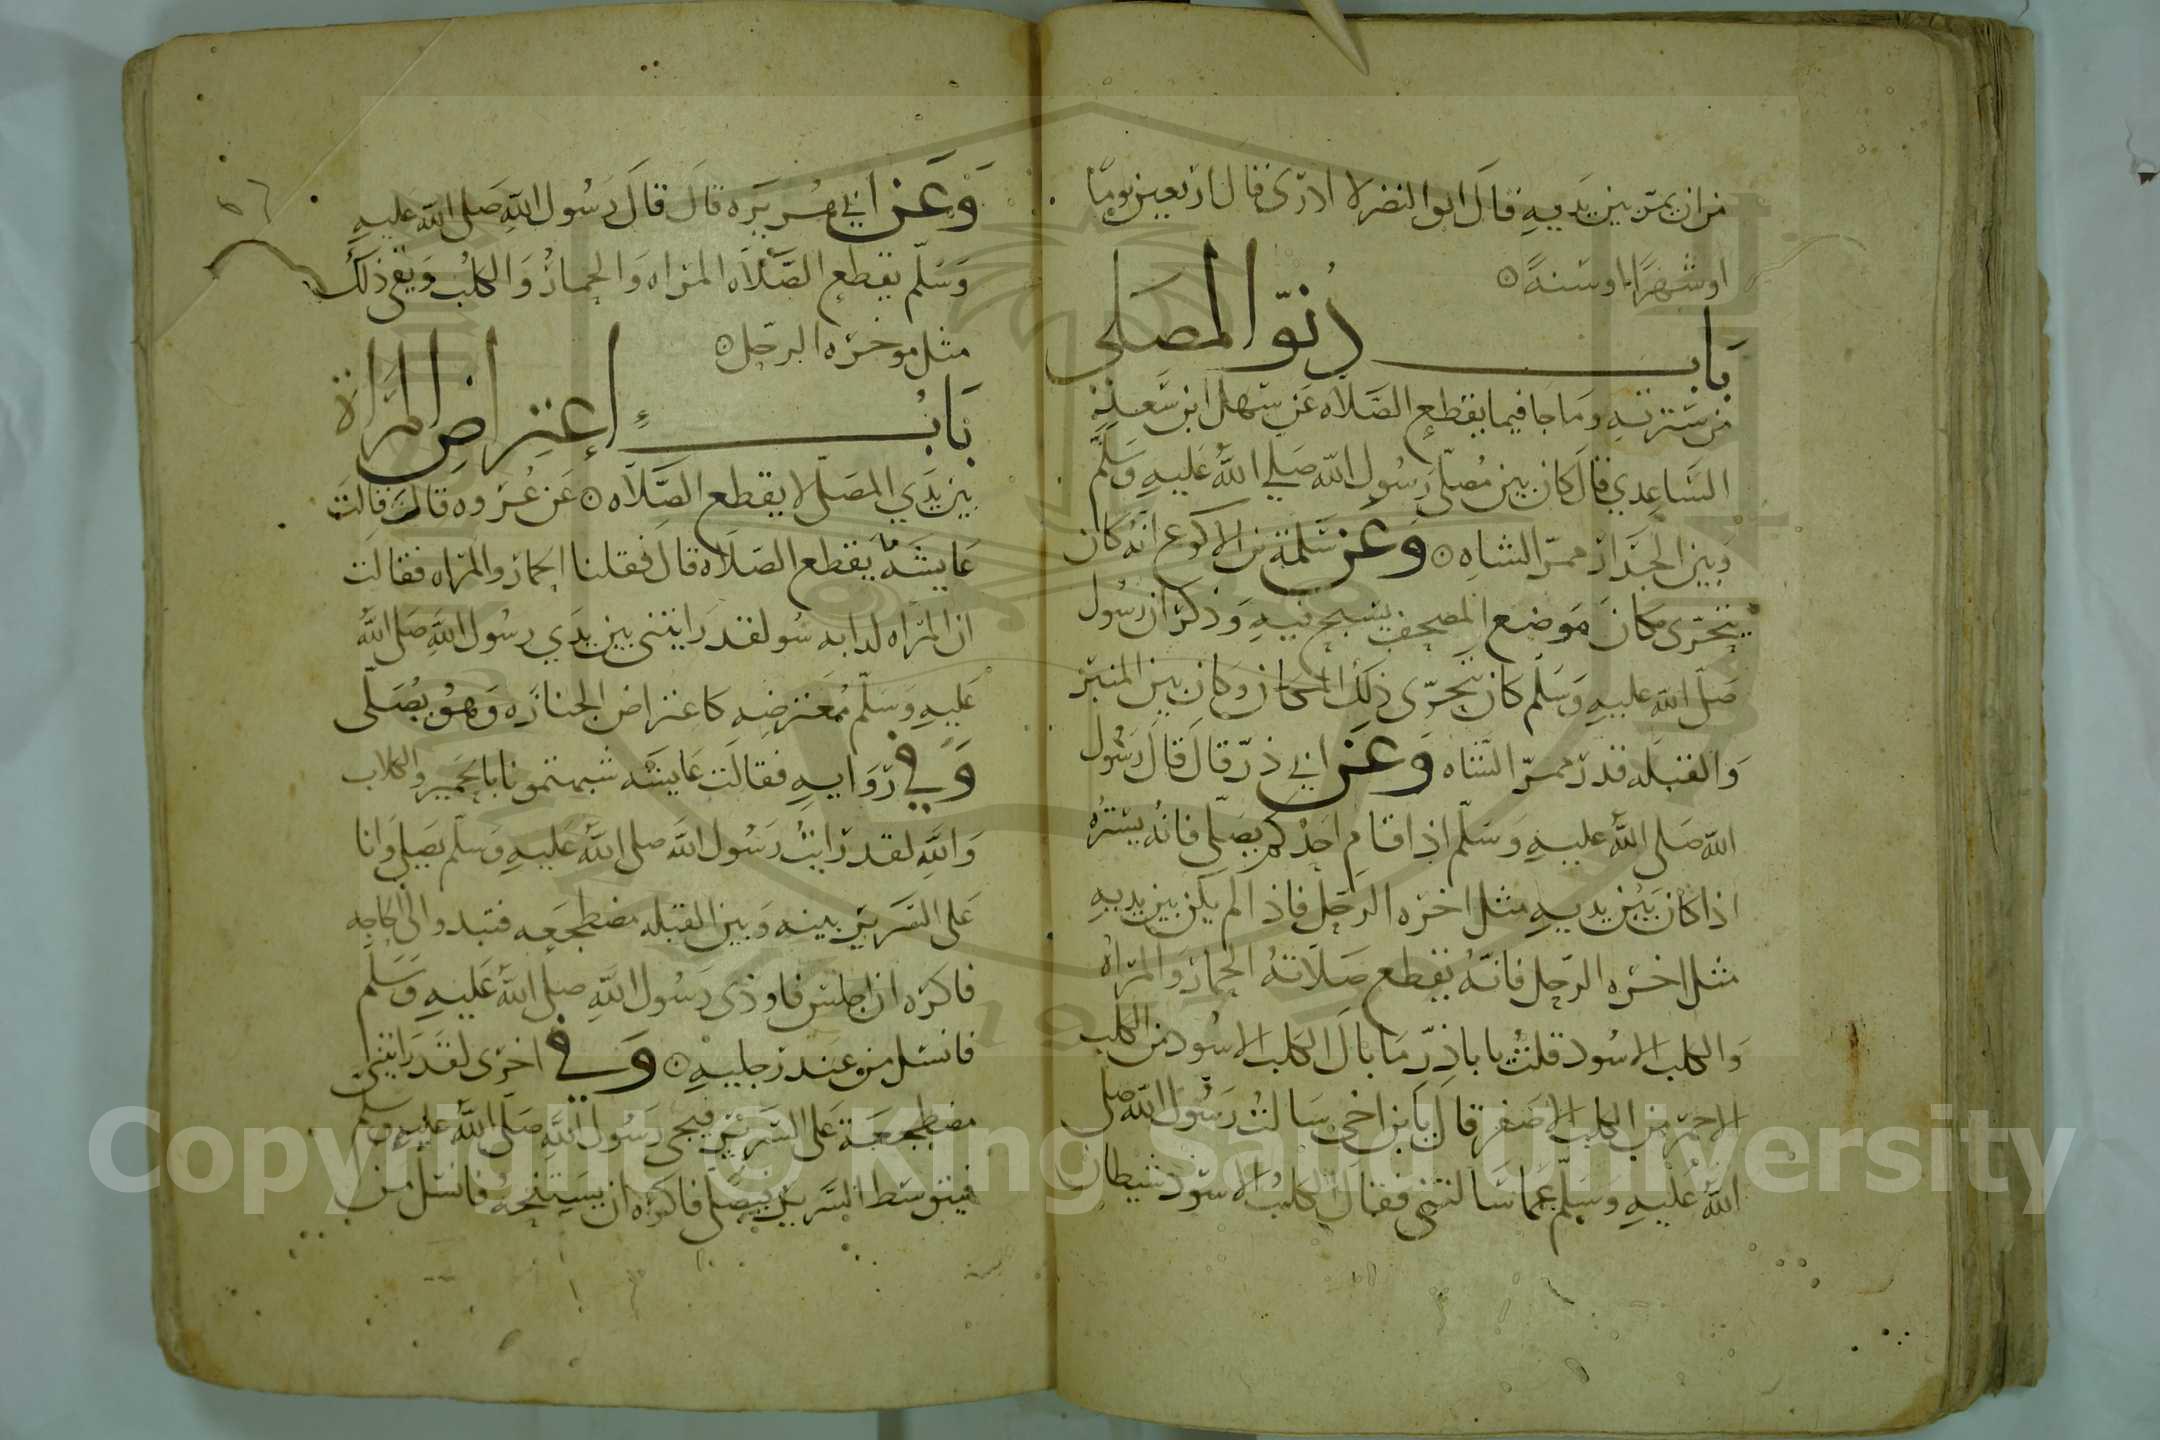 من ان يمر بين يديه قال ابو النضر لا ادرى قال اربعين يوما
او شهرا او سنة
باب دنو المصلى
من سترته وما جا فيما يقطع الصلاه عن سهل ابن سعد
الساعدي قال كان بين مصلى رسول الله صلي الله عليه وسلم
وبين الجدار ممر الشاه وعن سلمة بن الاكوع انه كان
يتحرى مكان موضع المصحف يسبح فيه وذكر ان رسول
صلى الله عليه وسلم كان يتحرى ذلك المكان وكان بين المنبر
والقبله قدر ممر الشاه وعن ابي ذر قال قال رسول
الله صلى الله عليه وسلم اذا قام احدكم يصلي فانه يستره
اذا كان بين يديه مثل اخره الرحل فاذا لم يكن بين يديه
مثل اخره الرحل فانه يقطع صلاته الحمار والمراه
والكلب الاسود قلت يا باذر ما بال الكلب الاسود من الكلب
الاحمر من الكلب الاصفر قال يابن اخى سالت رسول الله صلى
الله عليه وسلم عما سالتنى فقال الكلب الاسود شيطان
٥٦
وعن ابي هريره قال قال رسول الله صلى الله عليه
وسلم يقطع الصلاه المراه والحمار والكلب ويقى ذلك
مثل موخره الرحل
باب إعتراض المراة
بين يدي المصلى لا يقطع الصلاه عن عروه قال قالت
عايشه ما يقطع الصلاه قال فقلنا الحمار والمراه فقالت
ان المراه لدابه سو لقد رايتنى بين يدي رسول الله صلى الله
عليه وسلم معترضه كاعتراض الجنازه وهو يصلى
وفي روايه فقالت عايشه شبهتمونا بالحمير والكلاب
والله لقد رايت رسول الله صلى الله عليه وسلم يصلي وانا
على السرير بينه وبين القبله مضطجعه فتبدو الى الحاجه
فاكره ان اجلس فاوذى رسول الله صلى الله عليه وسلم
فانسل من عند رجليه وفي اخرى لقد رايتنى
مضطجعة على السرير فيجى رسول الله صلى الله عليه وسلم
فيتوسط السرير فيصلى فاكره ان يسنحه فانسل من
Copyright © King Saud University